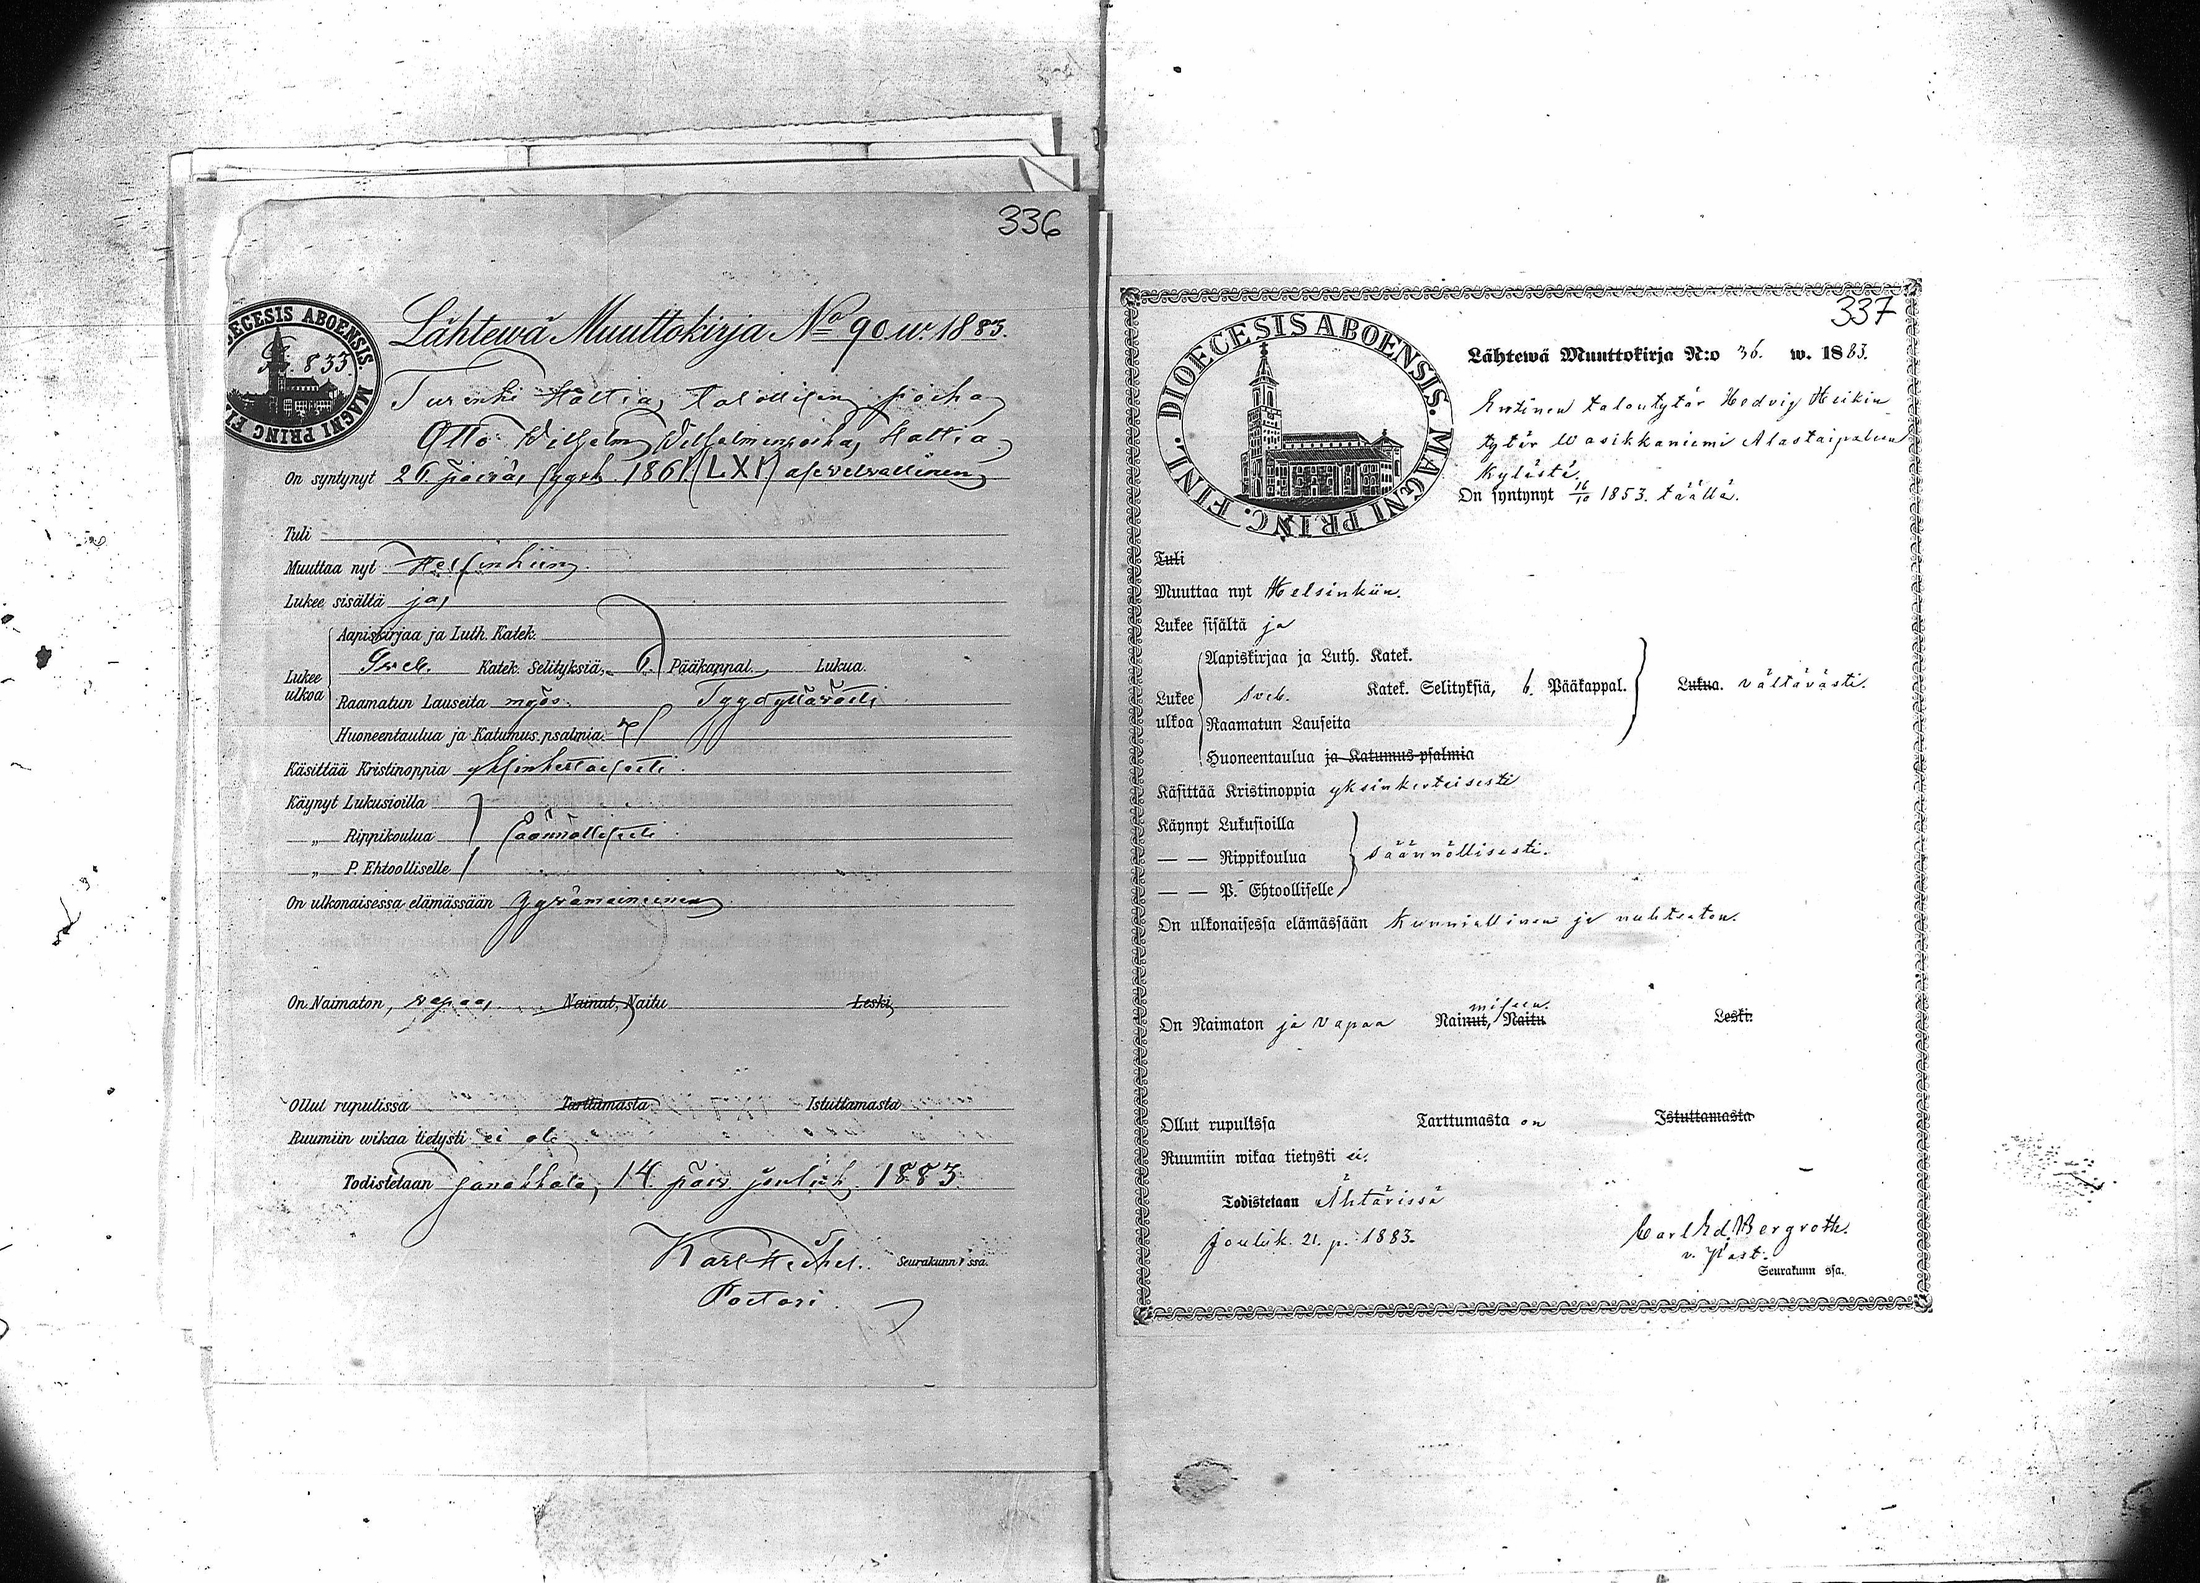 336
DIOECESIS ABOENSIS. MAGNI PRINC FI
833.
Lähtewä Muuttokirja No 90 w. 1883.
Turenki Haltia, talollisen poika
Otto Wilhelm Wilhelminpoika, Haltia
On syntynyt 26 päivä, syysk. 1861 (LXI) asevelvollinen
Tuli
Muuttaa nyt Helsinkiin
Lukee sisältä ja,
Aapiskirjaa ja Luth. Katek.
Lukee ulkoa Sveb. Katek. Selityksiä, 6. Pääkappal. Lukua.
Raamatun Lauseita myös. Tyydyttäväisti
Huoneentaulua ja Katumus.psalmia. 7
Käsittää Kristinoppia yksinkertaisesti
Käynyt Lukusioilla
„ Rippikoulua säännöllisesti
„ P. Ehtoolliselle
On ulkonaisessa elämässään hyvämaineinen
On Naimaton, vapaa, Nainut, Naitu Leski,
Ollut rupulissa Tarttumasta Istuttamasta
Ruumiin wikaa tietysti ei ole
Todistetaan Janakkala, 14. päiv. jouluk. 1883.
Karl Hechel. Seurakunn ssa.
337
FINL. DIOECESIS ABOENSIS. MAGNI PRINC.
Lähtewä Muuttokirja N:o 36. w. 1883.
Entinen talontytär Hedvig Heikin
tytär Wasikkaniemi Alastaipaleen
Kylästä.
On syntynyt 16/10 1853. täällä.
Tuli
Muuttaa nyt Helsinkiin.
Lukee sisältä ja
Aapiskirjaa ja Luth. Katek.
Lukee ulkoa Sveb. Katek. Selityksiä, 6. Pääkappal. Lukua. välttävästi.
Raamatun Lauseita
Huoneentaulua ja Katumus-psalmia
Käsittää Kristinoppia yksinkertaisesti
Käynyt Lukusioilla
— — Rippikoulua säännöllisesti.
— — P. Ehtoolliselle
On ulkonaisessa elämässään kunniallinen ja nuhteeton.
On Naimaton ja vapaa Nainut, Naitu. Leski.
Ollut rupulissa Tarttumasta on Istuttamasta
Ruumiin wikaa tietysti ei.
Todistetaan Ähtärissä
Jouluk. 21. p. 1883.
Carl Ed. Bergroth.
v. Past.
Seurakunn ssa.